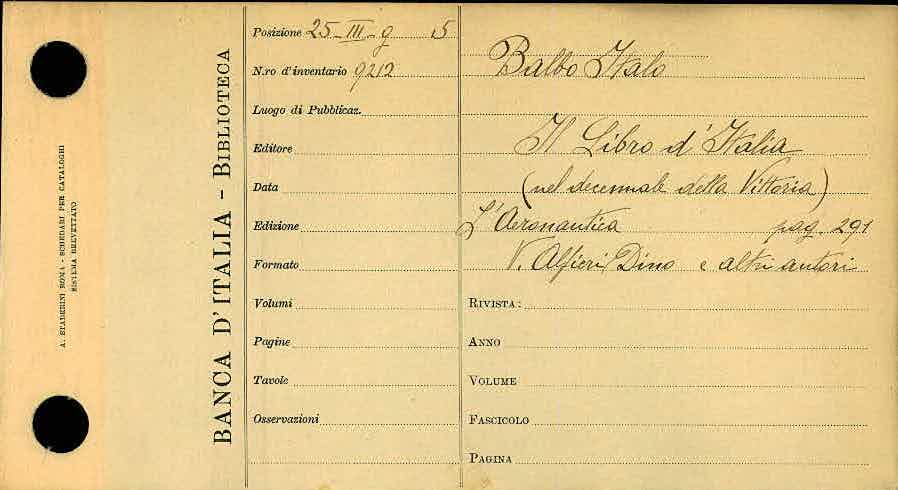 A. STADERINI ROMA - SCHEDARI PER CATALOGHI
SISTEMA BREVETTATO
BANCA D'ITALIA - BIBLIOTECA
Posizione 25-III-g 15
N.ro d'inventario 9212
Luogo di Pubblicaz.
Editore
Data
Edizione
Formato
Volumi
Pagine
Tavole
Osservazioni
Balbo Italo
Il Libro d'Italia
(nel decennale della Vittoria)
L'Aeronautica pag. 291
V. Alfieri Dino e altri autori
RIVISTA:
ANNO
VOLUME
FASCICOLO
PAGINA